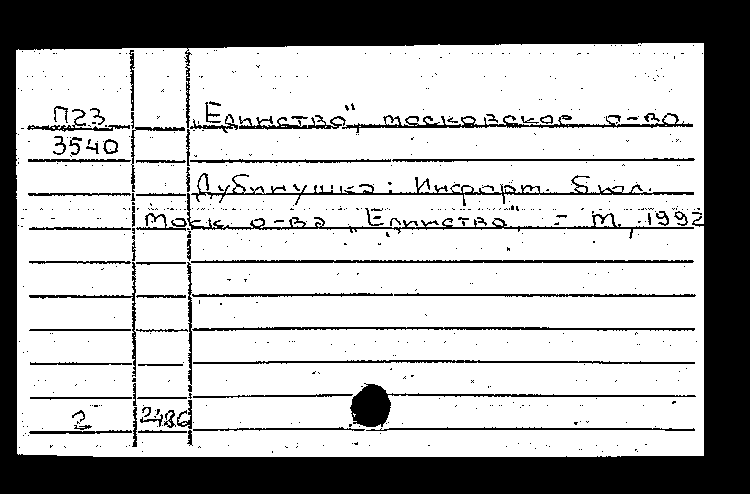 П23 „Единство", московское о-во
3540
Дубинушка: Информ. бюл.
Моск. о-ва „Единство". - М., 1992
2 2486